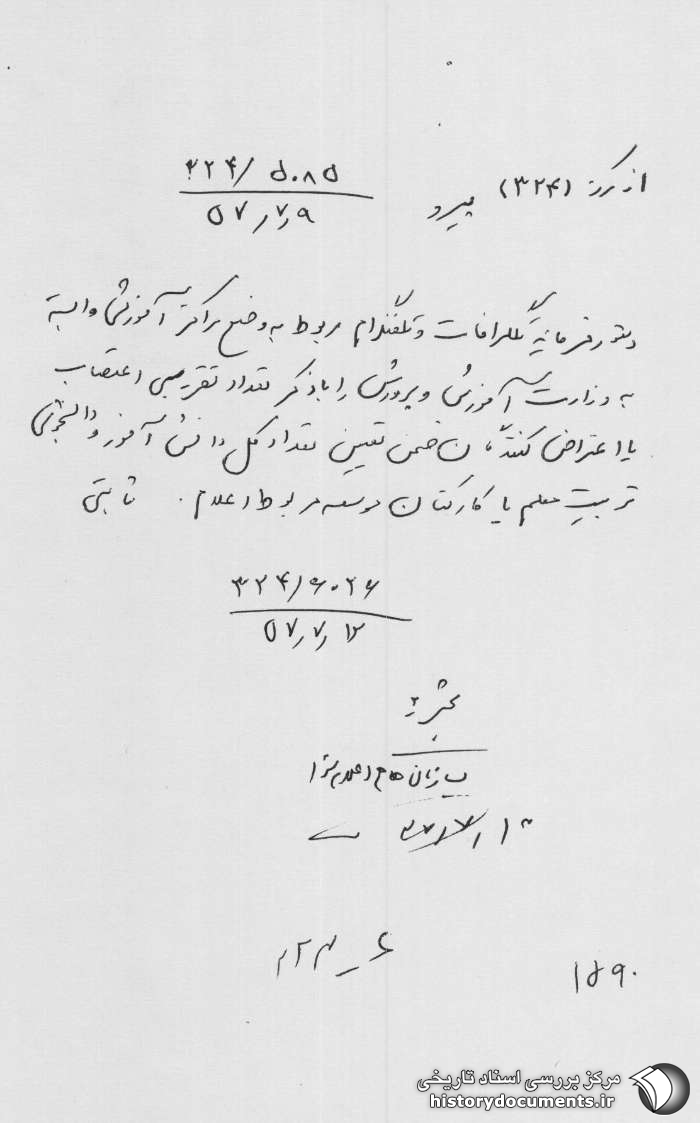 از مرکز (۳۲۴) پیرو ۳۲۴/۵۰۸۵
۵۷/۷/۹
دستور فرمائید تلگرافات و تلفنگرام مربوط به وضع مراکز آموزشی وابسته
به وزارت آموزش و پرورش را با ذکر تعداد تقریبی اعتصاب
یا اعتراض کنندگان ضمن تعیین تعداد کل دانش آموز و دانشجوی
تربیت معلم یا کارکنان موسسه مربوط اعلام. ثابتی
۳۲۴/۶۰۲۶
۵۷/۷/۱۲
بخش ۳
۱۵۹۰
مرکز بررسی اسناد تاریخی
historydocuments.ir